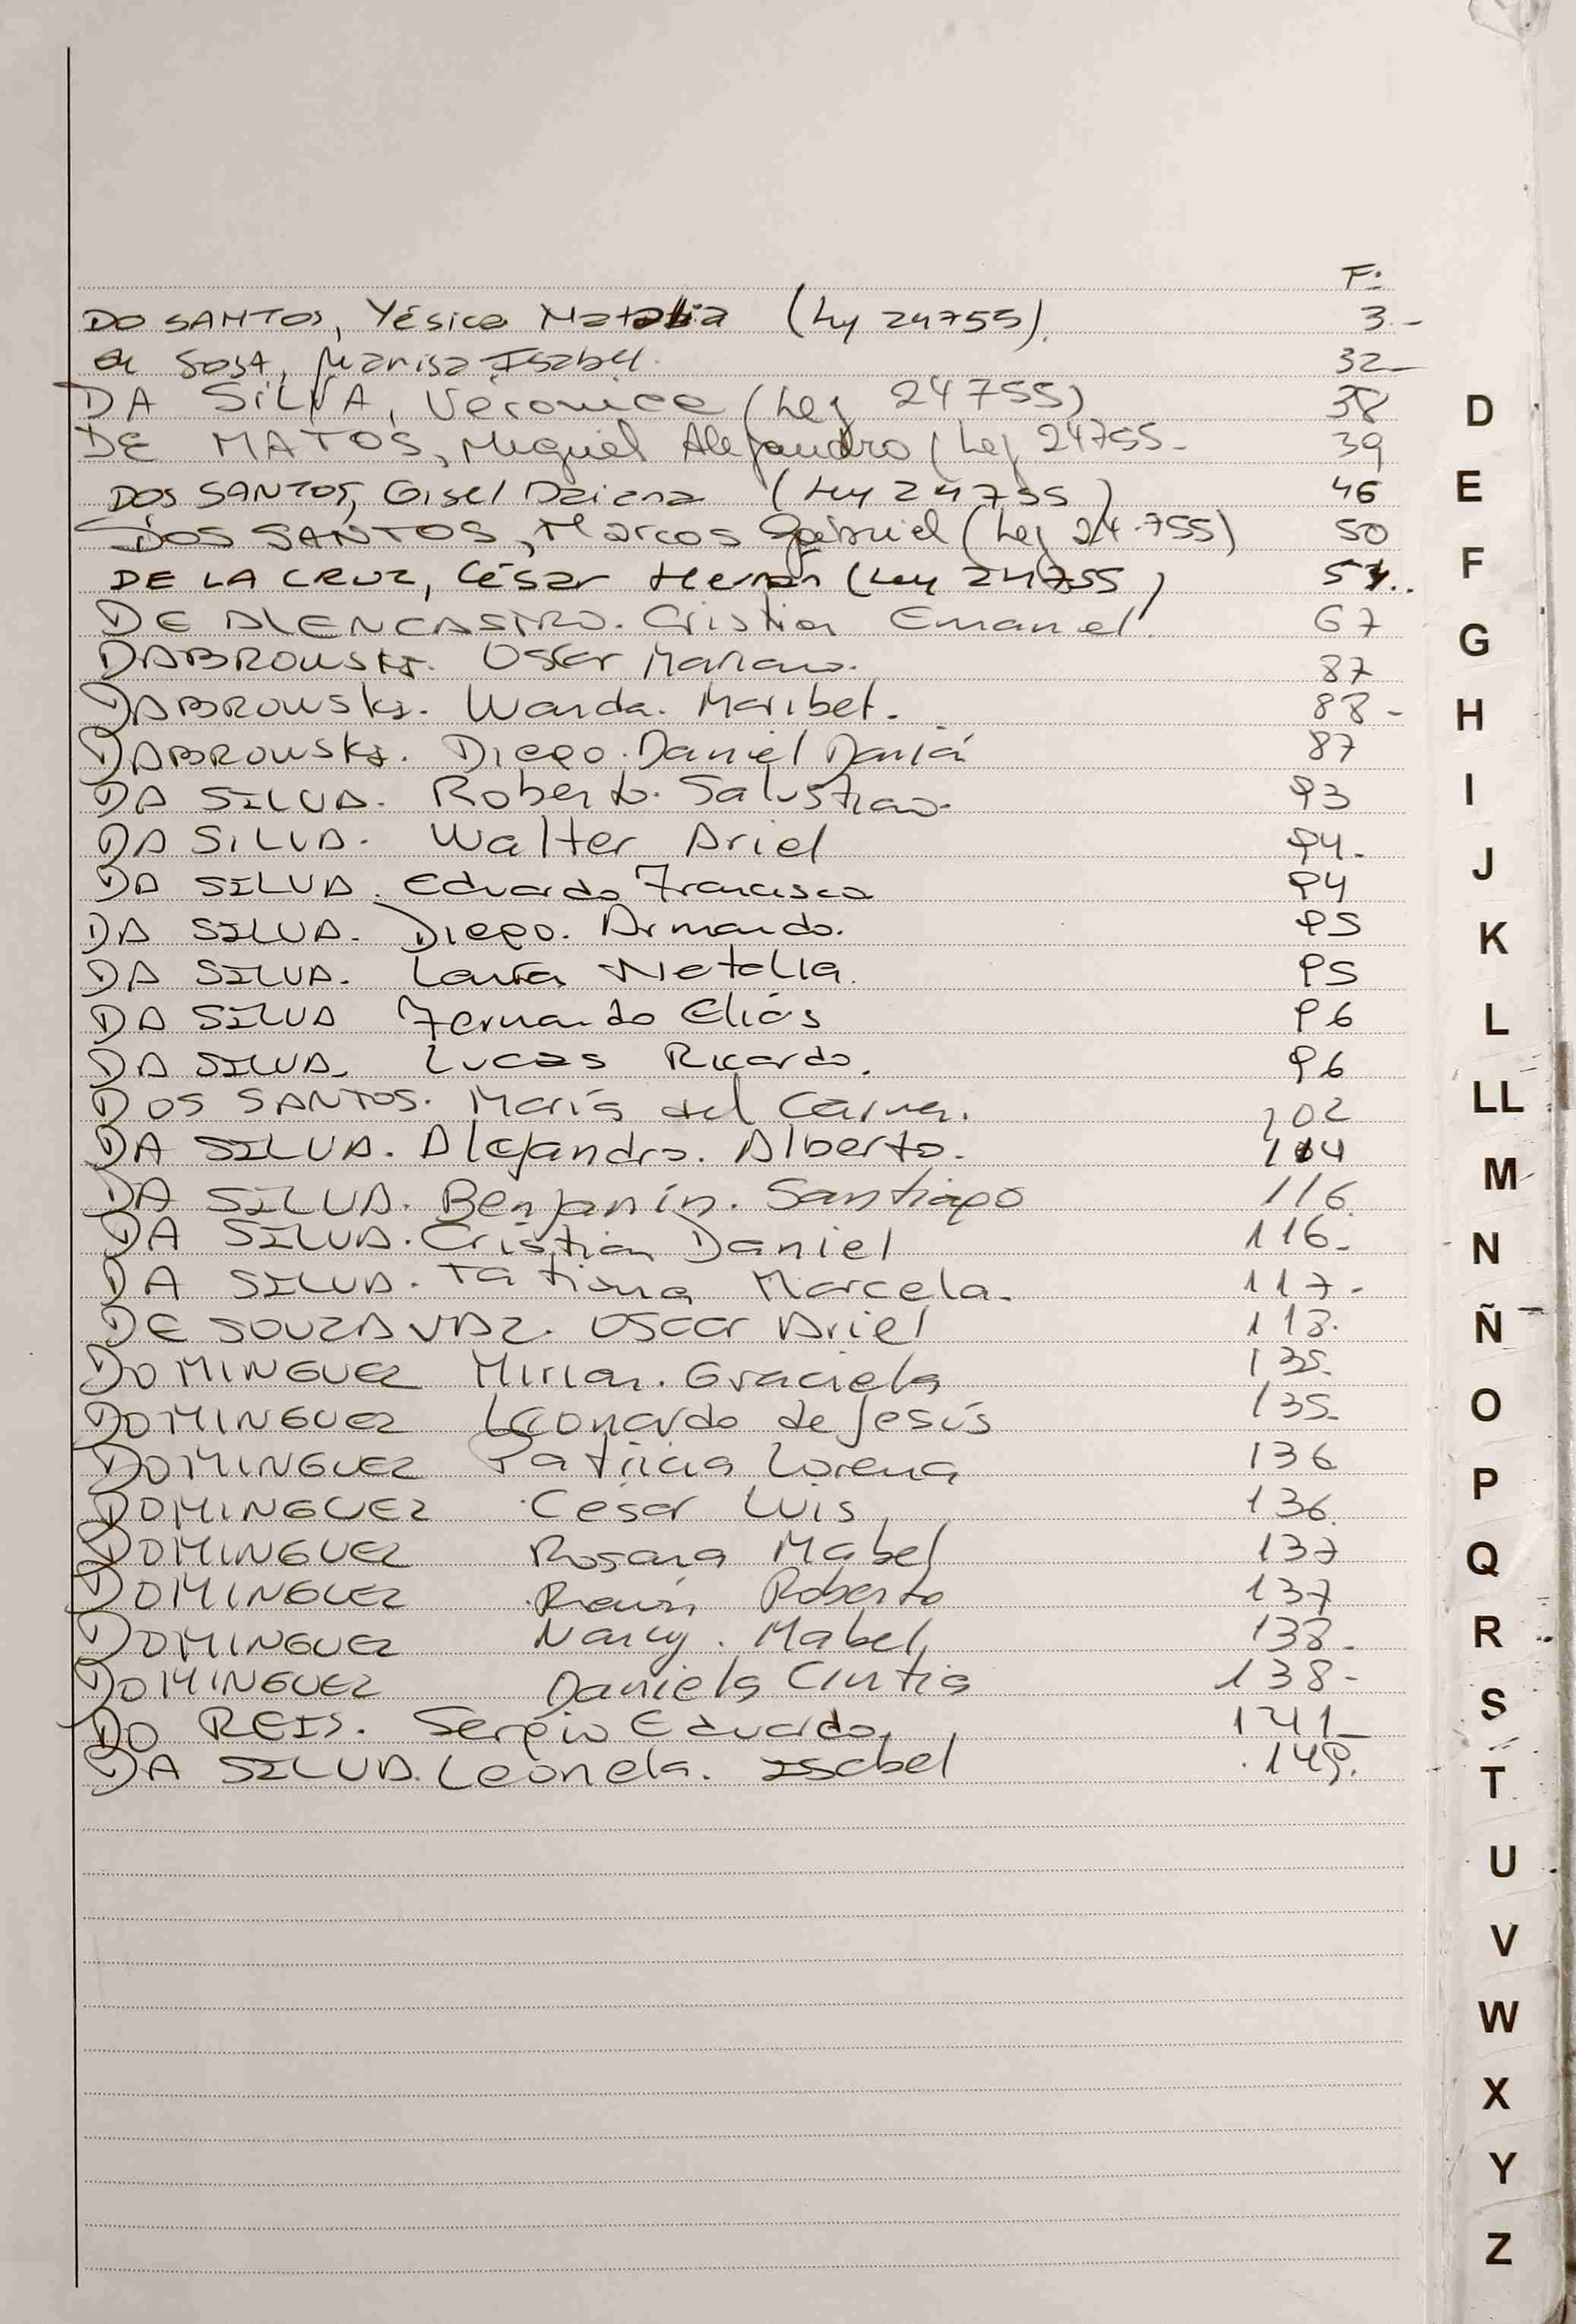 F:
DO SANTOS, Yésica Natalia (Ley 24755). 3.-
SOSA, Marisa Isabel. 32-
DA SILVA, Veronica (Ley 24755) 38
DE MATOS, Miguel Alejandro (Ley 24755- 39
DOS SANTOS, Gisel Daiana (Ley 24755) 46
DOS SANTOS, Marcos Gabriel (Ley 24.755) 50
DE LA CRUZ, César Hernán (Ley 24755)
DE ALENCASTRO. Cristian Emanuel. 67
DABROWSKI. Oscar Mariano. 87
DABROWSKI. Wanda. Maribel. 88-
DABROWSKI. Diego. Daniel Darío 87
DA SILVA. Roberto. Salustiano. 93
DA SILVA. Walter Ariel 94.
DA SILVA. Eduardo Francisco 94
DA SILVA. Diego. Armando. 95
DA SILVA. Laura Natalia. 95
DA SILVA Fernando Elías 96
DA SILVA. Lucas Ricardo. 96
DOS SANTOS. María del Carmen. 102
DA SILVA. Alejandro. Alberto. 
DA SILVA. Benjamín. Santiago 116
DA SILVA. Cristian Daniel 116-
DA SILVA. Tatiana Marcela. 117-
DE SOUZA VAZ. Oscar Ariel
DOMINGUEZ Mirian. Graciela 135.
DOMINGUEZ Leonardo de Jesús 135-
DOMINGUEZ Patricia Lorena 136
DOMINGUEZ César Luis 136.
DOMINGUEZ Rosana Mabel 137
DOMINGUEZ Ramón Roberto 137
DOMINGUEZ Nancy. Mabel 138-
DOMINGUEZ Daniela Cintia 138-
DO REIS. Sergio Eduardo. 141-
DA SILVA. Leonela. Isabel 149.
D
E
F
G
H
I
J
K
L
LL
M
N
Ñ
O
P
Q
R
S
T
U
V
W
X
Y
Z